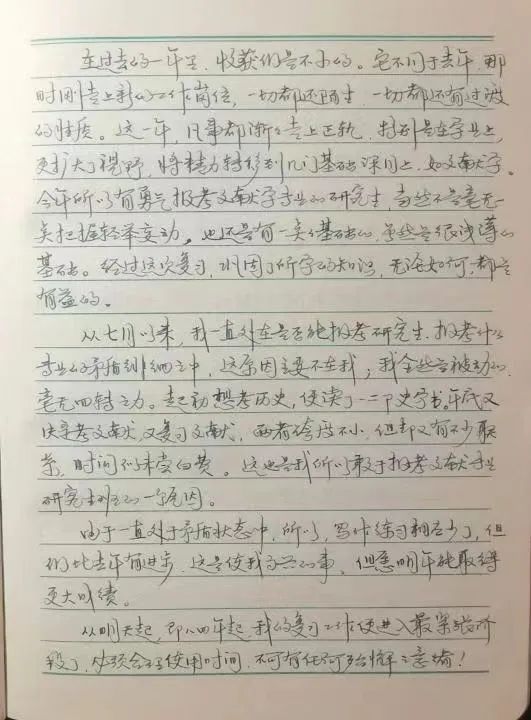 在过去的一年里，收获仍是不小的。它不同于去年，那
时刚走上新的工作岗位，一切都还陌生，一切都还有过渡
的性质。这一年，凡事都渐渐走上正轨，特别是在学业上，
更扩大了视野，将精力转移到几门基础课目上，如文献学。
今年所以有勇气报考文献学专业的研究生，当然不是毫无
实把握轻举妄动，也还是有一点基础的，虽然是很浅薄的
基础。经过这次复习，巩固了所学的知识，无论如何，都是
有益的。
从七月以来，我一直处在是否能报考研究生、报考什么
专业的矛盾纠缠之中，这原因主要不在我；我全然是被动的，
毫无回转之力。起初想考历史，便读了一二部史学书。年底又
决定考文献，又复习文献，两者跨度不小，但却又有不少联
系，时间仍未尝白费。这也是我所以敢于报考文献专业
研究生的一个原因。
由于一直处于矛盾状态中，所以，写作练习相应少了，但
仍比去年有进步，这是使我高兴的事，但愿明年能取得
更大成绩。
从明天起，即八四年起，我的复习工作便进入最紧张阶
段了，必须合理使用时间，不可有任何殆懈之意绪！